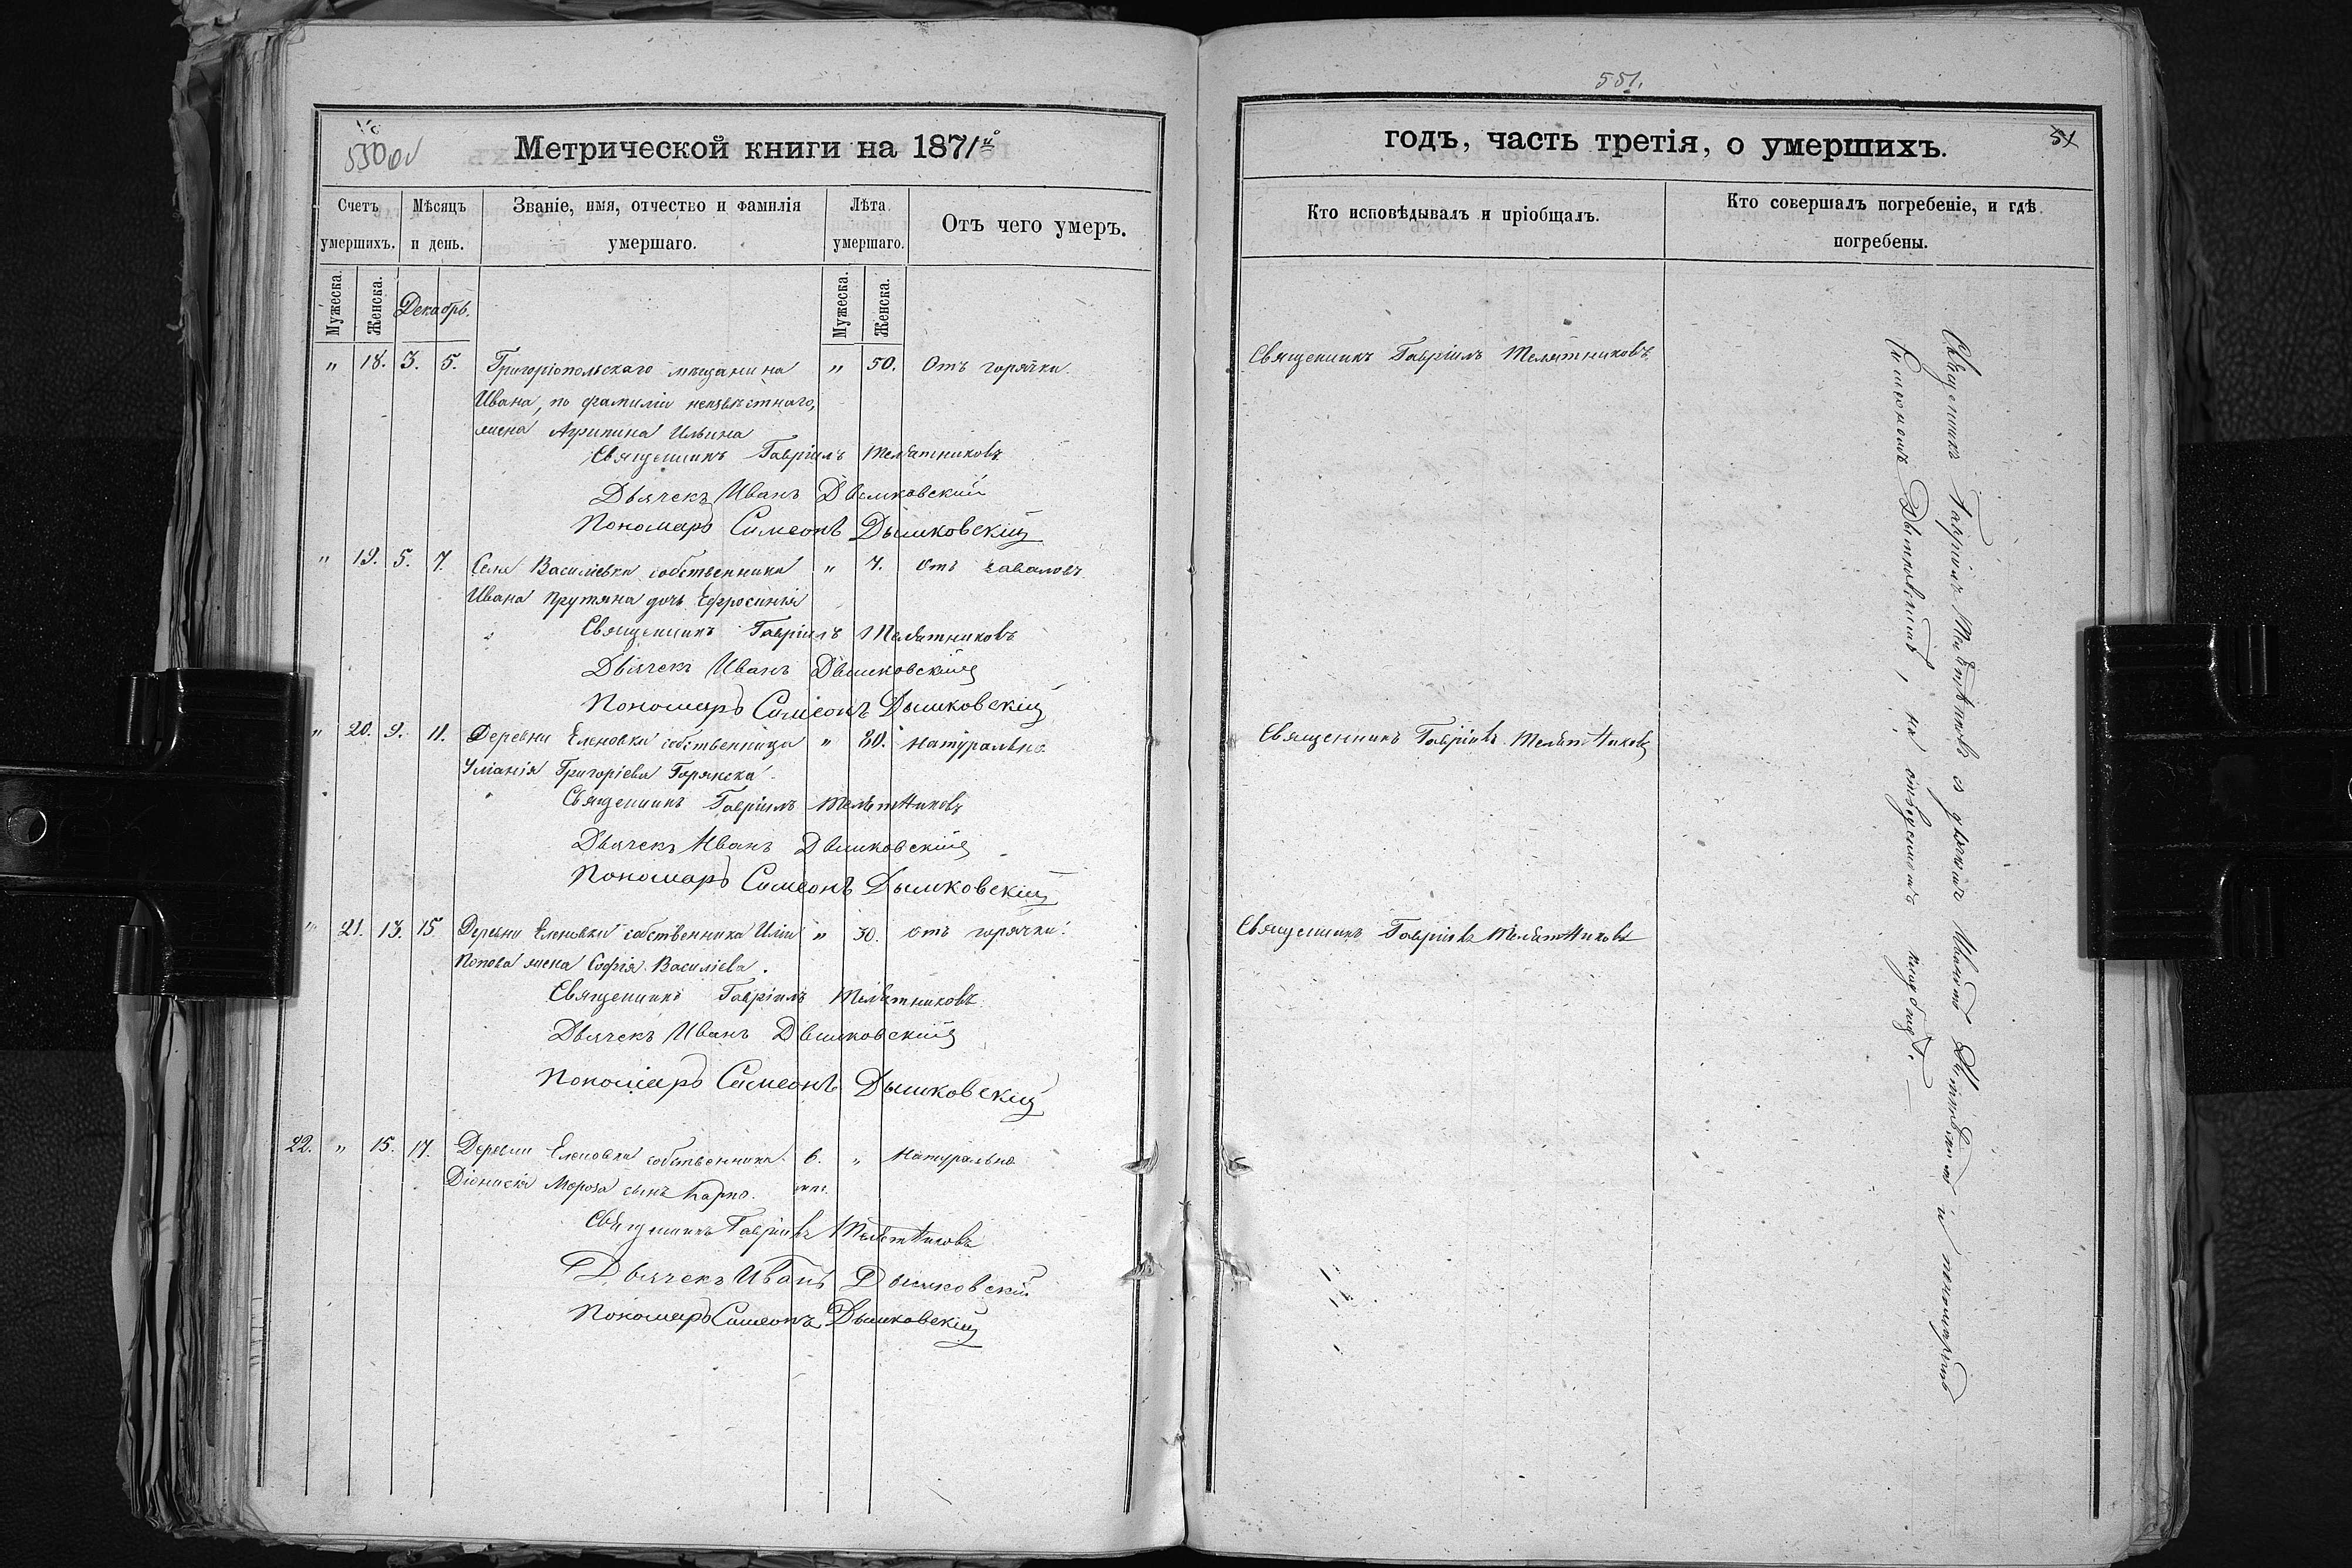 551.
550 об
Метрической книги на 1871й
годъ, часть третія, о умершихъ.
51
Счетъ умершихъ.
Мѣсяцъ и день.
Званіе, имя, отчество и фамилія умершаго.
Лѣта умершаго.
Отъ чего умеръ.
Кто исповѣдывалъ и пріобщалъ.
Кто совершалъ погребеніе, и гдѣ погребены.
Мужеска.
Женска.
Декабрь.
Мужеска.
Женска.
" 18. 3. 5. Григоріопольскаго мещанина " 50. Отъ горячки. Священникъ Гавріилъ Телятниковъ
Ивана, по фамиліи неизвѣстнаго,
жена Агрипина Ильина
Священникъ Гавріилъ Телятниковъ
Дьячекъ Иванъ Дымковскій
Пономарь Симеонъ Дымковскій
" 19. 5. 7. Села Василіевки собственника " 7. отъ заваловъ.
Ивана Прутяна дочь Ефросинія
Священникъ Гавріилъ Телятниковъ
Дьячекъ Иванъ Дымковскій
Пономарь Симеонъ Дымковскій
" 20. 9. 11. Деревни Еленовки собственница " 80. натурально Священникъ Гавріилъ Телятниковъ
Григоріева
Священникъ Гавріилъ Телятниковъ
Дьячекъ Иванъ Дымковскій
Пономарь Симеонъ Дымковскій
" 21. 13. 15 Деревни Еленовки собственника Иліи " 30. отъ горячки. Священникъ Гавріилъ Телятниковъ
Попова жена Софія Василіева.
Священникъ Гавріилъ Телятниковъ
Дьячекъ Иванъ Дымковскій
Пономарь Симеонъ Дымковскій
22. " 15. 17. Деревни Еленовки собственника 6. " Натурально
Діонисія Мороза сынъ Карпъ. мц.
Священникъ Гавріилъ Телятниковъ
Дьячекъ Иванъ Дымковскій
Пономарь Симеонъ Дымковскій
Священникъ Гавріилъ Телятниковъ съ дьячкомъ Иваномъ Дымковскимъ и пономаремъ
Симеономъ Дымковскимъ, на отведенномъ кладбищѣ.